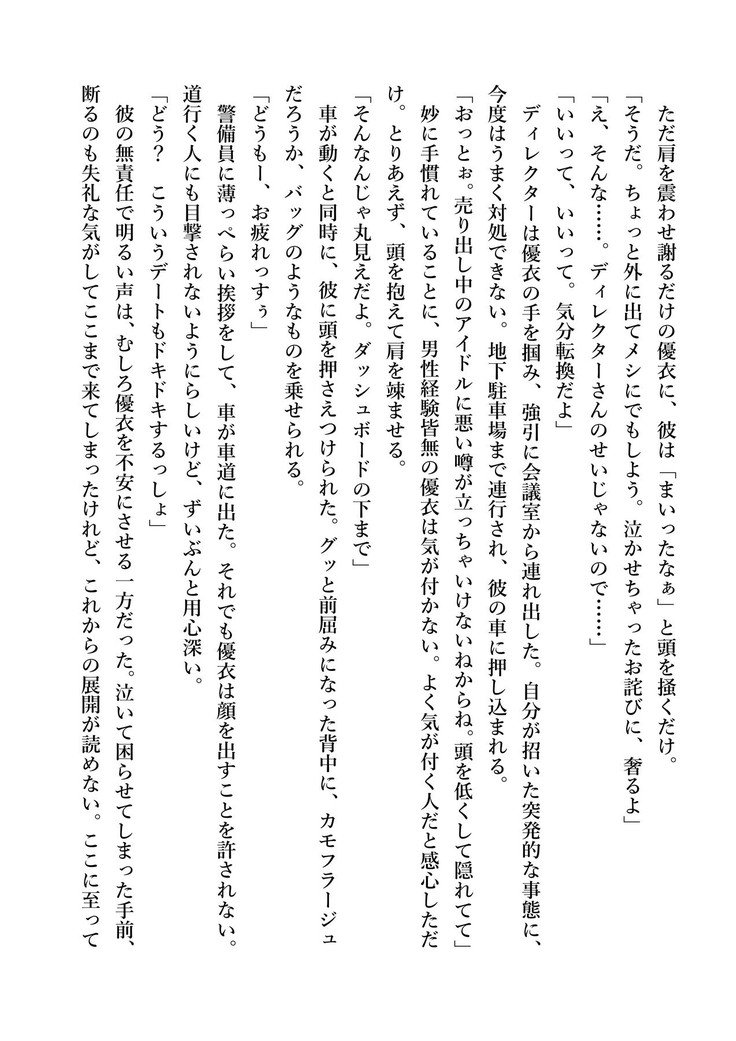 ただ肩を震わせ謝るだけの優衣に、彼は「まいったなぁ」と頭を掻くだけ。
「そうだ。ちょっと外に出てメシにでもしよう。泣かせちゃったお詫びに、奢るよ」
「え、そんな……。ディレクターさんのせいじゃないので……」
「いいって、いいって。気分転換だよ」
　ディレクターは優衣の手を掴み、強引に会議室から連れ出した。自分が招いた突発的な事態に、
今度はうまく対処できない。地下駐車場まで連行され、彼の車に押し込まれる。
「おっとぉ。売り出し中のアイドルに悪い噂が立っちゃいけないねからね。頭を低くして隠れてて」
　妙に手慣れていることに、男性経験皆無の優衣は気が付かない。よく気が付く人だと感心しただ
け。とりあえず、頭を抱えて肩を竦ませる。
「そんなんじゃ丸見えだよ。ダッシュボードの下まで」
　車が動くと同時に、彼に頭を押さえつけられた。グッと前屈みになった背中に、カモフラージュ
だろうか、バッグのようなものを乗せられる。
「どうもー、お疲れっすぅ」
　警備員に薄っぺらい挨拶をして、車が車道に出た。それでも優衣は顔を出すことを許されない。
道行く人にも目撃されないようにらしいけど、ずいぶんと用心深い。
「どう？　こういうデートもドキドキするっしょ」
　彼の無責任で明るい声は、むしろ優衣を不安にさせる一方だった。泣いて困らせてしまった手前、
断るのも失礼な気がしてここまで来てしまったけれど、これからの展開が読めない。ここに至って